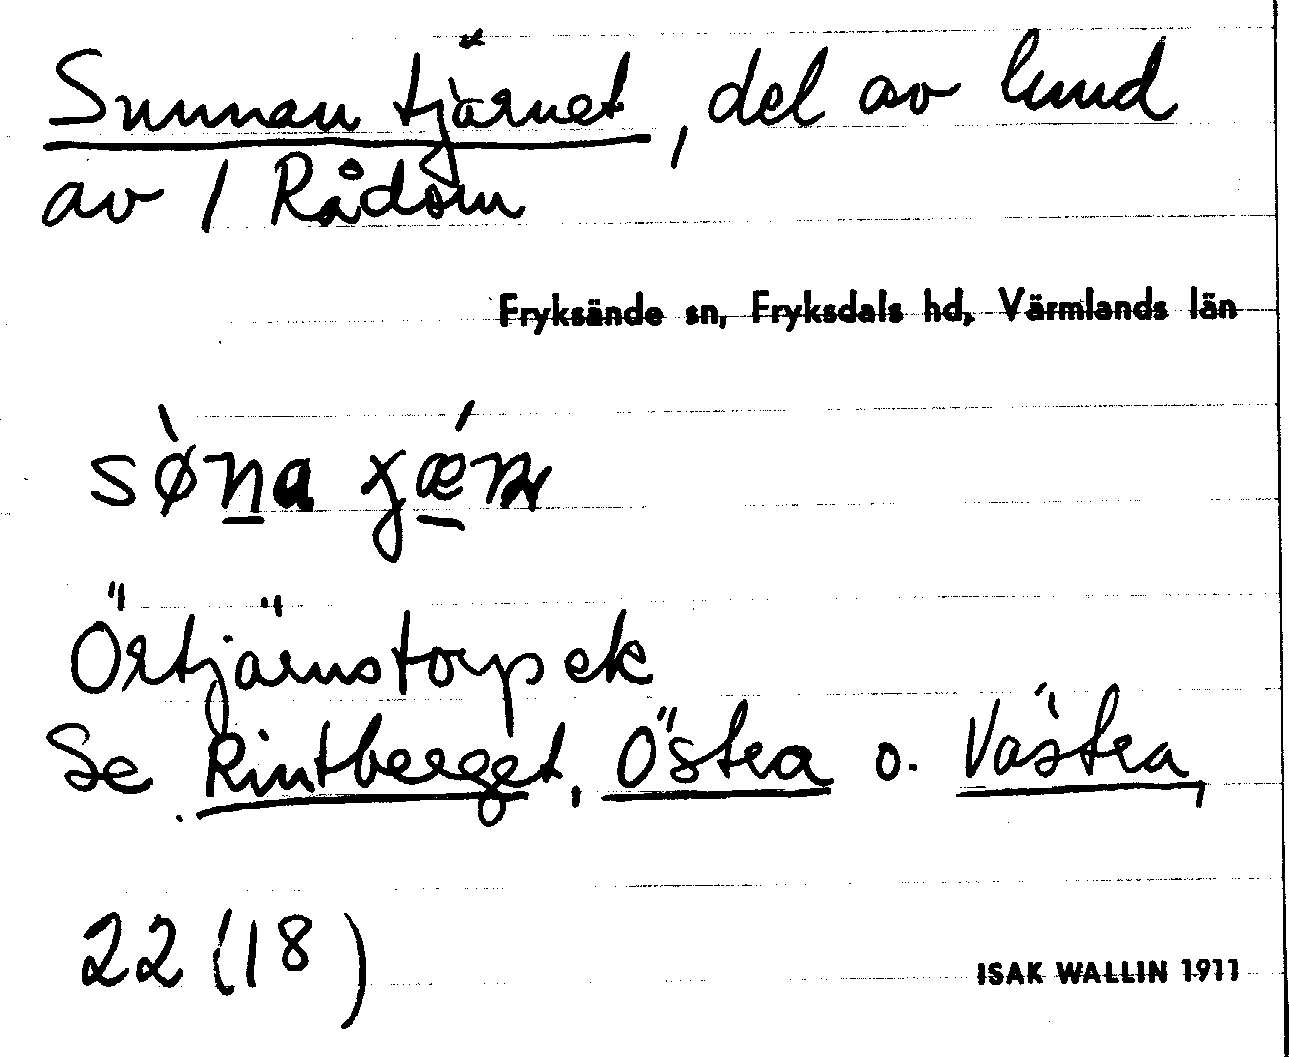 Sunnan tjärnet, del av lund
av 1 Rådom
Fryksände sn, Fryksdals hd, Värmlands län
sø̀na
Örtjärnstorp ek
Se Rintberget, Östra o. Västra,
22 (18)
ISAK WALLIN 1911